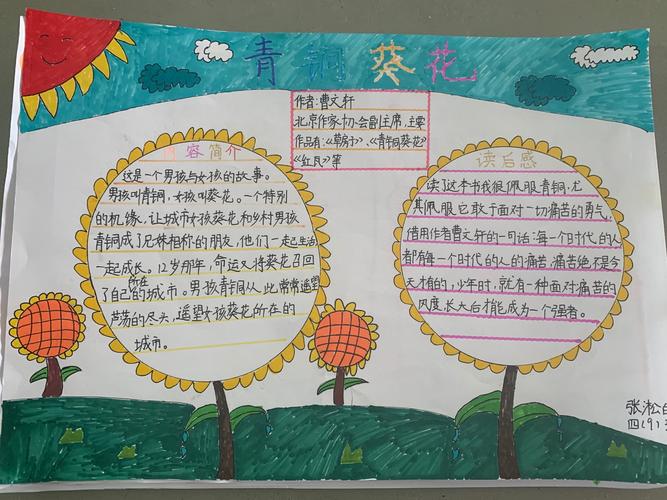 青铜葵花
作者:曹文轩
北京作家协会副主席,主要
作品有:《草房子》、《青铜葵花》
《红瓦》等
容简介
这是一个男孩与女孩的故事。
男孩叫青铜,女孩叫葵花。一个特别
的机缘,让城市女孩葵花和乡村男孩
青铜成了兄妹相称的朋友,他们一起生活
一起成长。12岁那年,命运又将葵花召回
了自己所在的城市。男孩青铜从此常常遥望
芦荡的尽头,遥望女孩葵花所在的
城市。
读后感
读了这本书我很佩服青铜,尤
其佩服它敢于面对一切痛苦的勇气,
借用作者曹文轩的一句话:每一个时代的人
都有每一个时代的人的痛苦,痛苦绝不是今
天才有的,少年时,就有一种面对痛苦的
风度,长大后才能成为一个强者。
张淞
四(9)